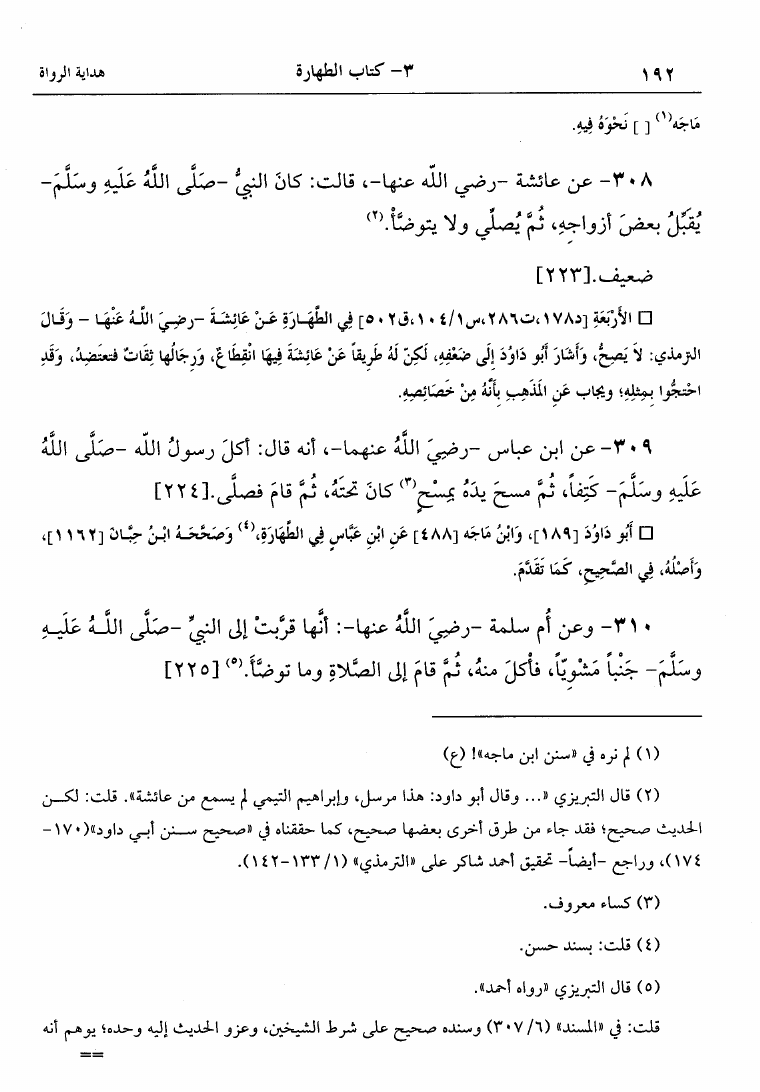 ١٩٢ ٣- كتاب الطهارة هداية الرواة
مَاجَه(١) [ ] نَحْوَهُ فِيهِ.
٣٠٨- عن عائشة -رضي الله عنها-، قالت: كانَ النبيُّ -صَلَّى اللَّهُ عَلَيهِ وسَلَّمَ-
يُقَبِّلُ بعضَ أزواجِهِ، ثُمَّ يُصلِّي ولا يتوضَّأْ.(٢)
ضعيف.[٢٢٣]
□ الأَرْبَعَةِ [د١٧٨،ت٢٨٦،س١٠٤/١،ق٥٠٢] فِي الطَّهَارَةِ عَنْ عَائِشَةَ -رضِيَ اللَّهُ عَنْهَا - وَقَالَ
الترمذي: لاَ يَصِحُّ، وَأَشَارَ أَبُو دَاوُدَ إِلَى ضَعْفِهِ، لَكِنْ لَهُ طَرِيقاً عَنْ عَائِشَةَ فِيهَا انْقِطَاعٌ، وَرِجَالُها ثِقَاتٌ فتعتضِدُ، وَقَدِ
احْتجُّوا بِمثلِهِ؛ ويجاب عَنِ المَذهبِ بِأَنَّهُ مِنْ خَصَائِصِهِ.
٣٠٩- عن ابن عباس -رضِيَ اللَّهُ عنهما-، أنه قال: أكلَ رسولُ الله -صَلَّى اللَّهُ
عَلَيهِ وسَلَّمَ- كَتِفاً، ثُمَّ مسحَ يدَهُ بِمِسْحٍ(٣) كانَ تحتَهُ، ثُمَّ قامَ فصلَّى.[٢٢٤]
□ أَبُو دَاوُدَ [١٨٩]، وَابْنُ مَاجَه [٤٨٨] عَنِ ابْنِ عَبَّاسٍ فِي الطَّهَارَةِ،(٤) وَصَحَّحَهُ ابْنُ حِبَّانَ [١١٦٢]،
وَأَصْلُهُ، فِي الصَّحِيحِ، كَمَا تَقَدَّمَ.
٣١٠- وعن أُم سلمة -رضِيَ اللَّهُ عنها-: أنَّها قرَّبتْ إلى النبيِّ -صَلَّى اللَّهُ عَلَيهِ
وسَلَّمَ- جَنْباً مَشْوِيّاً، فأكلَ منهُ، ثُمَّ قامَ إلى الصَّلاةِ وما توضَّأَ.(٥) [٢٢٥]
(١) لم نره في «سنن ابن ماجه»! (ع)
(٢) قال التبريزي «... وقال أبو داود: هذا مرسل، وإبراهيم التيمي لم يسمع من عائشة». قلت: لكن
الحديث صحيح؛ فقد جاء من طرق أخرى بعضها صحيح، كما حققناه في «صحيح سنن أبي داود»(١٧٠-
١٧٤)، وراجع -أيضاً- تحقيق أحمد شاكر على «الترمذي» (١/ ١٣٣-١٤٢).
(٣) كساء معروف.
(٤) قلت: بسند حسن.
(٥) قال التبريزي «رواه أحمد».
قلت: في «المسند» (٣٠٧/٦) وسنده صحيح على شرط الشيخين، وعزو الحديث إليه وحده؛ يوهم أنه
==